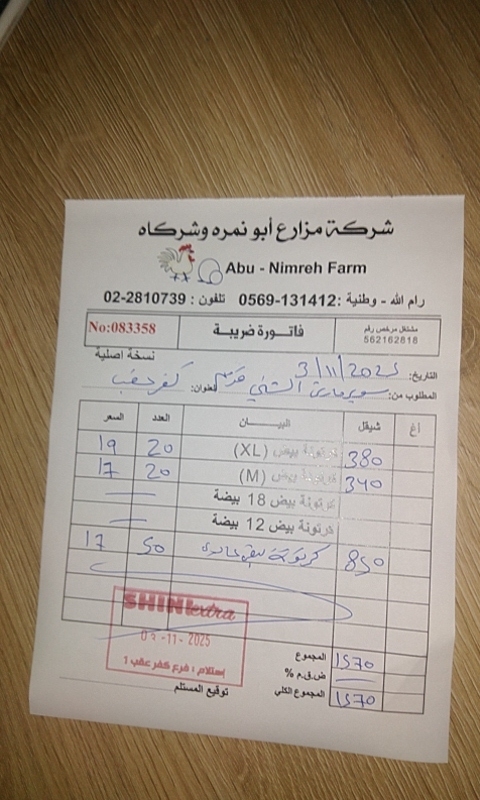 شركة مزارع أبو نمره وشركاه
Abu - Nimreh Farm
رام الله - وطنية : 0569-131412 تلفون : 02-2810739
مشتغل مرخص رقم 562162818
فاتورة ضريبة
No:083358
نسخة اصلية
التاريخ: 3/11/2025
المطلوب من: سوبرماركت الشني العنوان: كفر عقب
أغ شيقل البيان العدد السعر
380 كرتونة بيض (XL) 20 19
340 كرتونة بيض (M) 20 17
كرتونة بيض 18 بيضة
كرتونة بيض 12 بيضة
850 كرتونة بيض 50 17
SHINI extra
03-11-2025
إستلام : فرع كفر عقب 1
المجموع 1570
ض.ق.م %
المجموع الكلي 1570
توقيع المستلم